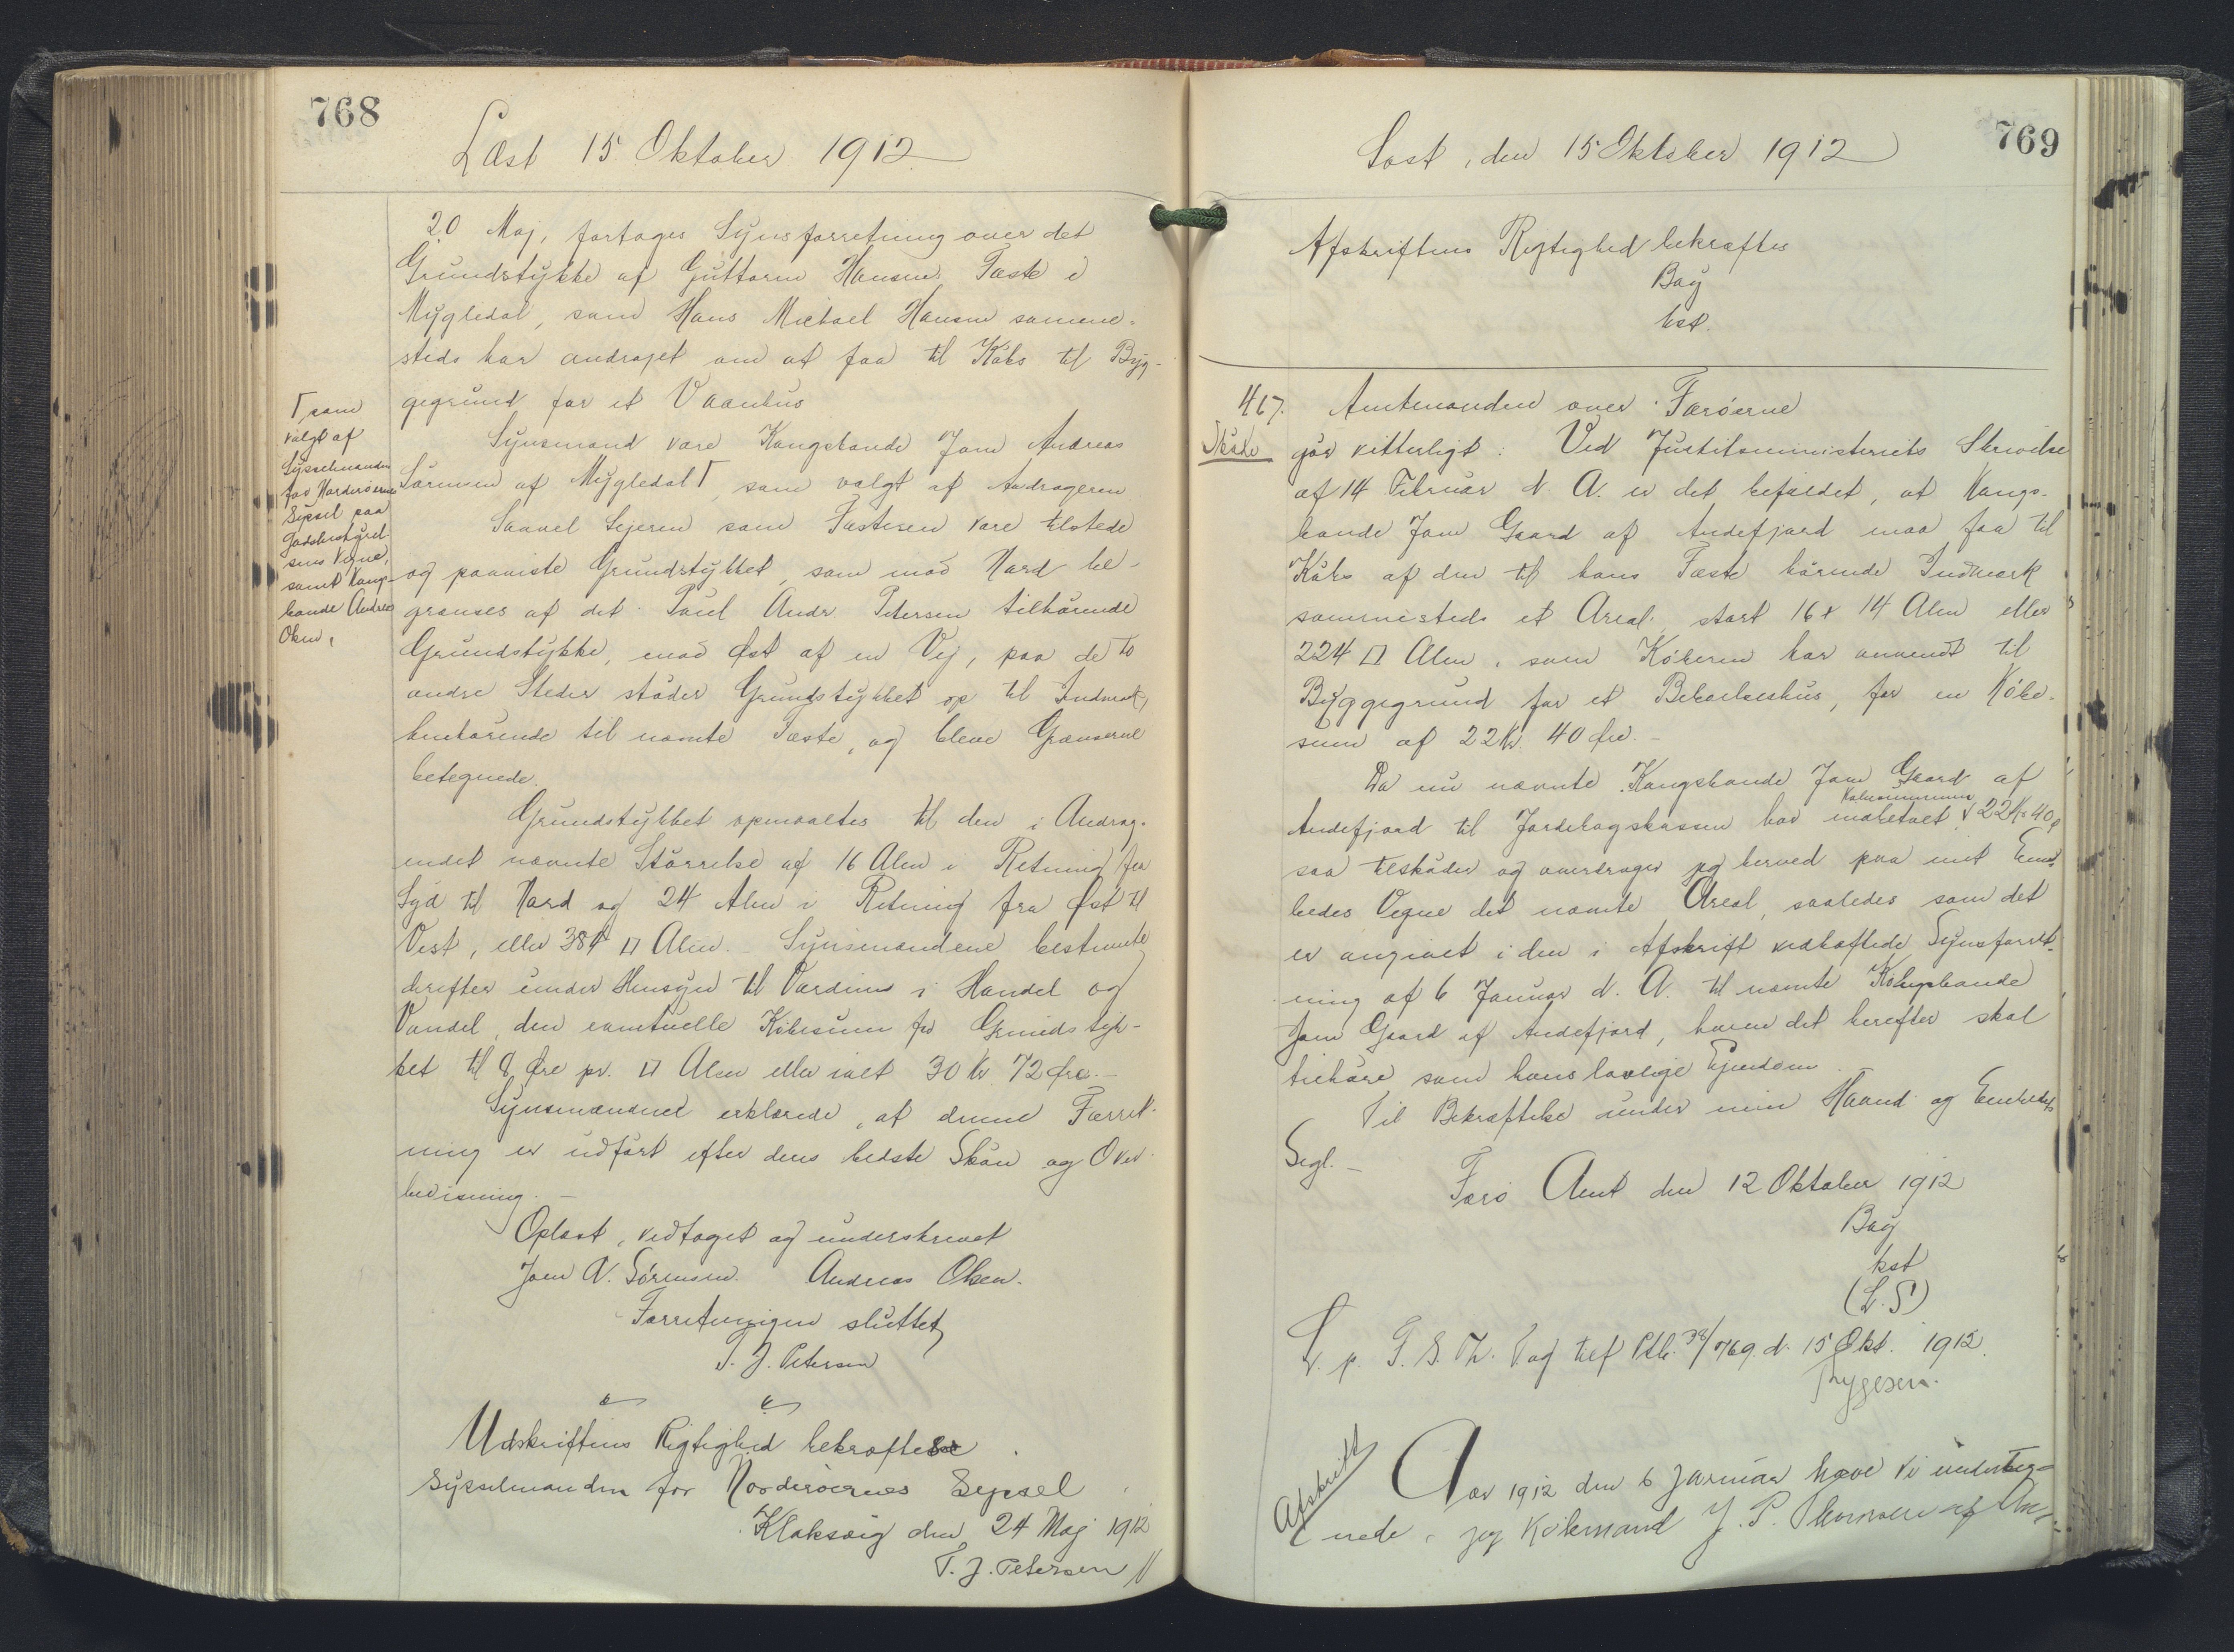 768
Læst 15. Oktober 1912
20 Maj, fortages Synsforretning over det
Grundstykke af Guttorm Hansens Fæste i
Mygledal, som Hans Michael Hansen samme-
steds har andraget om at faa til Købs til Byg-
gegrund for et Vaanhus
Synsmænd vare Kongsbonde Joen Andreas
Sörensen af Mygledal ┌, som valgt af Andrageren
┌ som
valgt af
Sysselmanden
for Norderøernes
Syssel paa
Godsbestyrel-
sens Vegne,
samt Kongs-
bonde Andreas
Olsen,
Saavel Sejeren som Fæsteren vare tilstede
og paaviste Grundstykket, som mod Nord be-
grænses af det Poul Andr. Petersen tilhörende
Grundstykke, mod Øst af en Vej, paa de to
andre Steder støder Grundstykket op til Indmark,
henhörende til nævnte Fæste, og bleve Grænserne
betegnede.
Grundstykket opmaaltes til den i Andrag-
endet nævnte Størrelse af 16 Alen i Retning fra
Syd til Nord og 24 Alen i Retning fra Øst til
Vest, eller 384 □ Alen. Synsmændene bestemte
derefter under Hensyn til Værdien i Handel og
Vandel, den eventuelle Købesum for Grundstyk-
ket til 8 Øre pr. □ Alen eller ialt 30 Kr. 72 Øre.-
Synsmændene erklærede, at denne Forret-
ning er udført efter deres bedste Skøn og Over-
bevisning.-
Oplæst, vedtaget og underskrevet
Joen A. Sörensen. Andreas Olsen.
Forretningen sluttet
T. J. Petersen
Udskriftens Rigtighed bekræftes
Sysselmanden for Norderøernes Syssel
Klaksvig den 24 Maj 1912
T. J. Petersen
769
Læst, den 15 Oktober 1912
Afskriftens Rigtighed bekræftes
Bay
kst.
467.
Skøde
Amtmanden over Færøerne
gör vitterligt: Ved Justitsministeriets Skrivelse
af 14 Februar d. A. er det befalet, at Kongs-
bonde Joen Gaard af Andefjord maa faa til
Købs af den til hans Fæste hörende Indmark
sammesteds et Areal, stort 16 x 14 Alen eller
224 □ Alen, som Köberen har anvendt til
Byggegrund for et Beboelseshus, for en Købe-
sum af 22 Kr. 40 Øre.-
Da nu nævnte Kongsbonde Joen Gaard af
Andefjord til Jordebogskassen har indbetalt Købesummen 22 Kr 40 Ø
saa tilskøder og overdrager jeg herved paa mit Em-
bedes Vegne det nævnte Areal, saaledes som det
er angivet i den i Afskrift vedhæftede Synsforret-
ning af 6 Januar d. A. til nævnte Kongsbonde
Joen Gaard af Andefjord, hvem det herefter skal
tilhøre som hans lovlige Ejendom.
Til Bekræftelse under min Haand og Embeds
Segl.-
Færø Amt den 12 Oktober 1912
Bay
kst
(L.S)
L. p. F. S. Th. T og tilf Ptb. 38/769. d. 15 Okt. 1912.
Trygesen.
Afskrift
Aar 1912 den 6 Januar have vi underteg-
nede, jeg Købmand J. P. Thomsen af